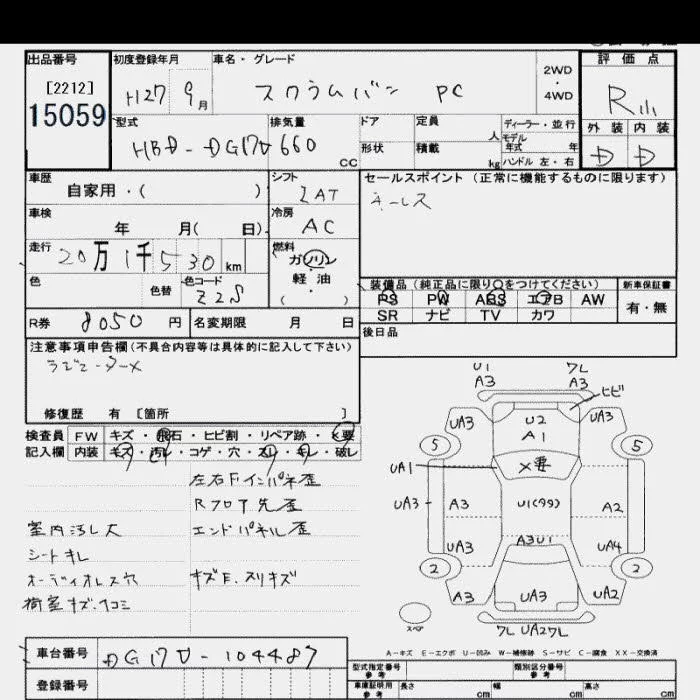 出品番号
[2212]
15059
初度登録年月
H27 9月
車名・グレード
スクラムバン PC
2WD
4WD
評価点
R
外装 内装
D D
型式
HBD-DG17V
排気量
660 CC
ドア
形状
定員 人
積載 kg
ディーラー・並行
モデル年式 年
ハンドル 左・右
車歴
自家用・( )
シフト
IAT
セールスポイント (正常に機能するものに限ります)
キーレス
車検
年 月( 日)
冷房
AC
走行
20万1千530km
燃料
ガソリン
軽油
( )
色
色替
色コード
Z2S
装備品 (純正品に限り○をつけてください)
新車保証書
PS PW ABS エアB AW
SR ナビ TV カワ
有・無
R券 8050円
名変期限 月 日
後日品
注意事項申告欄(不具合内容等は具体的に記入して下さい)
ラジエーターメ
修復歴 有 [箇所 ]
検査員
記入欄
FW キズ・飛石・ヒビ割・リペア跡・X要
内装 キズ・汚レ・コゲ・穴・スレ・キレ・破レ
左右Fインパネ歪
Rフロア先歪
室内汚レ大
エンドパネル歪
シートキレ
オーディオレス穴
キズE.スリキズ
荷室キズ.凹コミ
U1
A3
フレ
A3
ヒビ
UA3
U2
A1
UA3
5
5
UA1
X要
UA3
A3
U1(タタ)
A2
UA3
A3U1
UA4
2
2
A3
UA3
UA2
スペア
フレ UA2フレ
A-キズ E-エクボ U-凹み W-補修跡 S-サビ C-腐食 XX-交換済
車台番号
DG17V-104487
登録番号
型式指定番号
参考
類別区分番号
参考
車庫証明用
参考
長さ cm
幅 cm
高さ cm